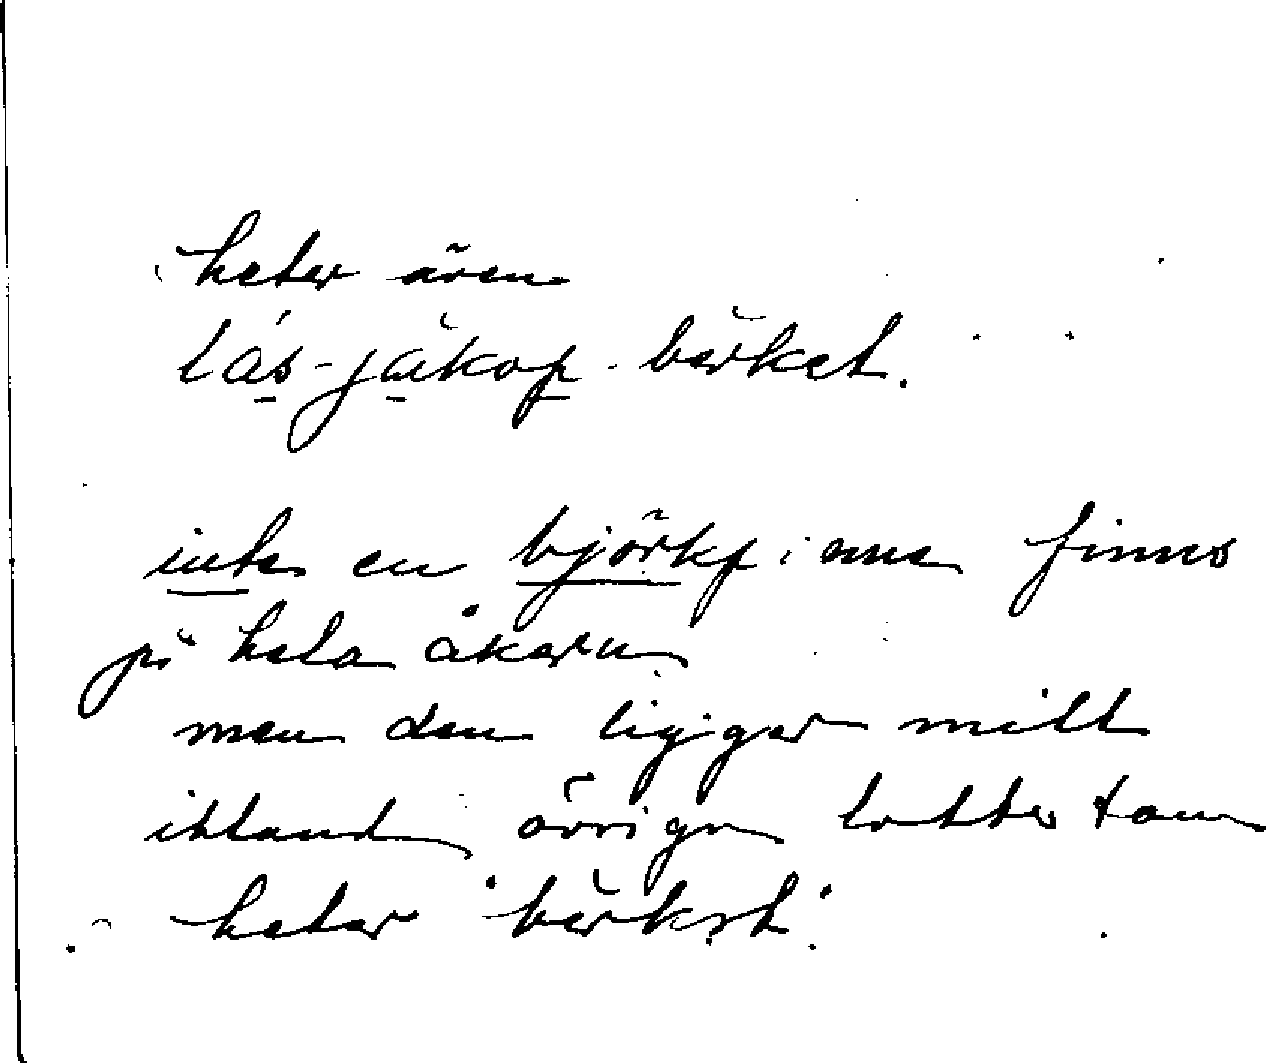 heter även
lás-jäkop-bärket.
inte en björkpinne finns
på hela åkern
men den ligger mitt
ibland övriga lotter som
heter "bärket"